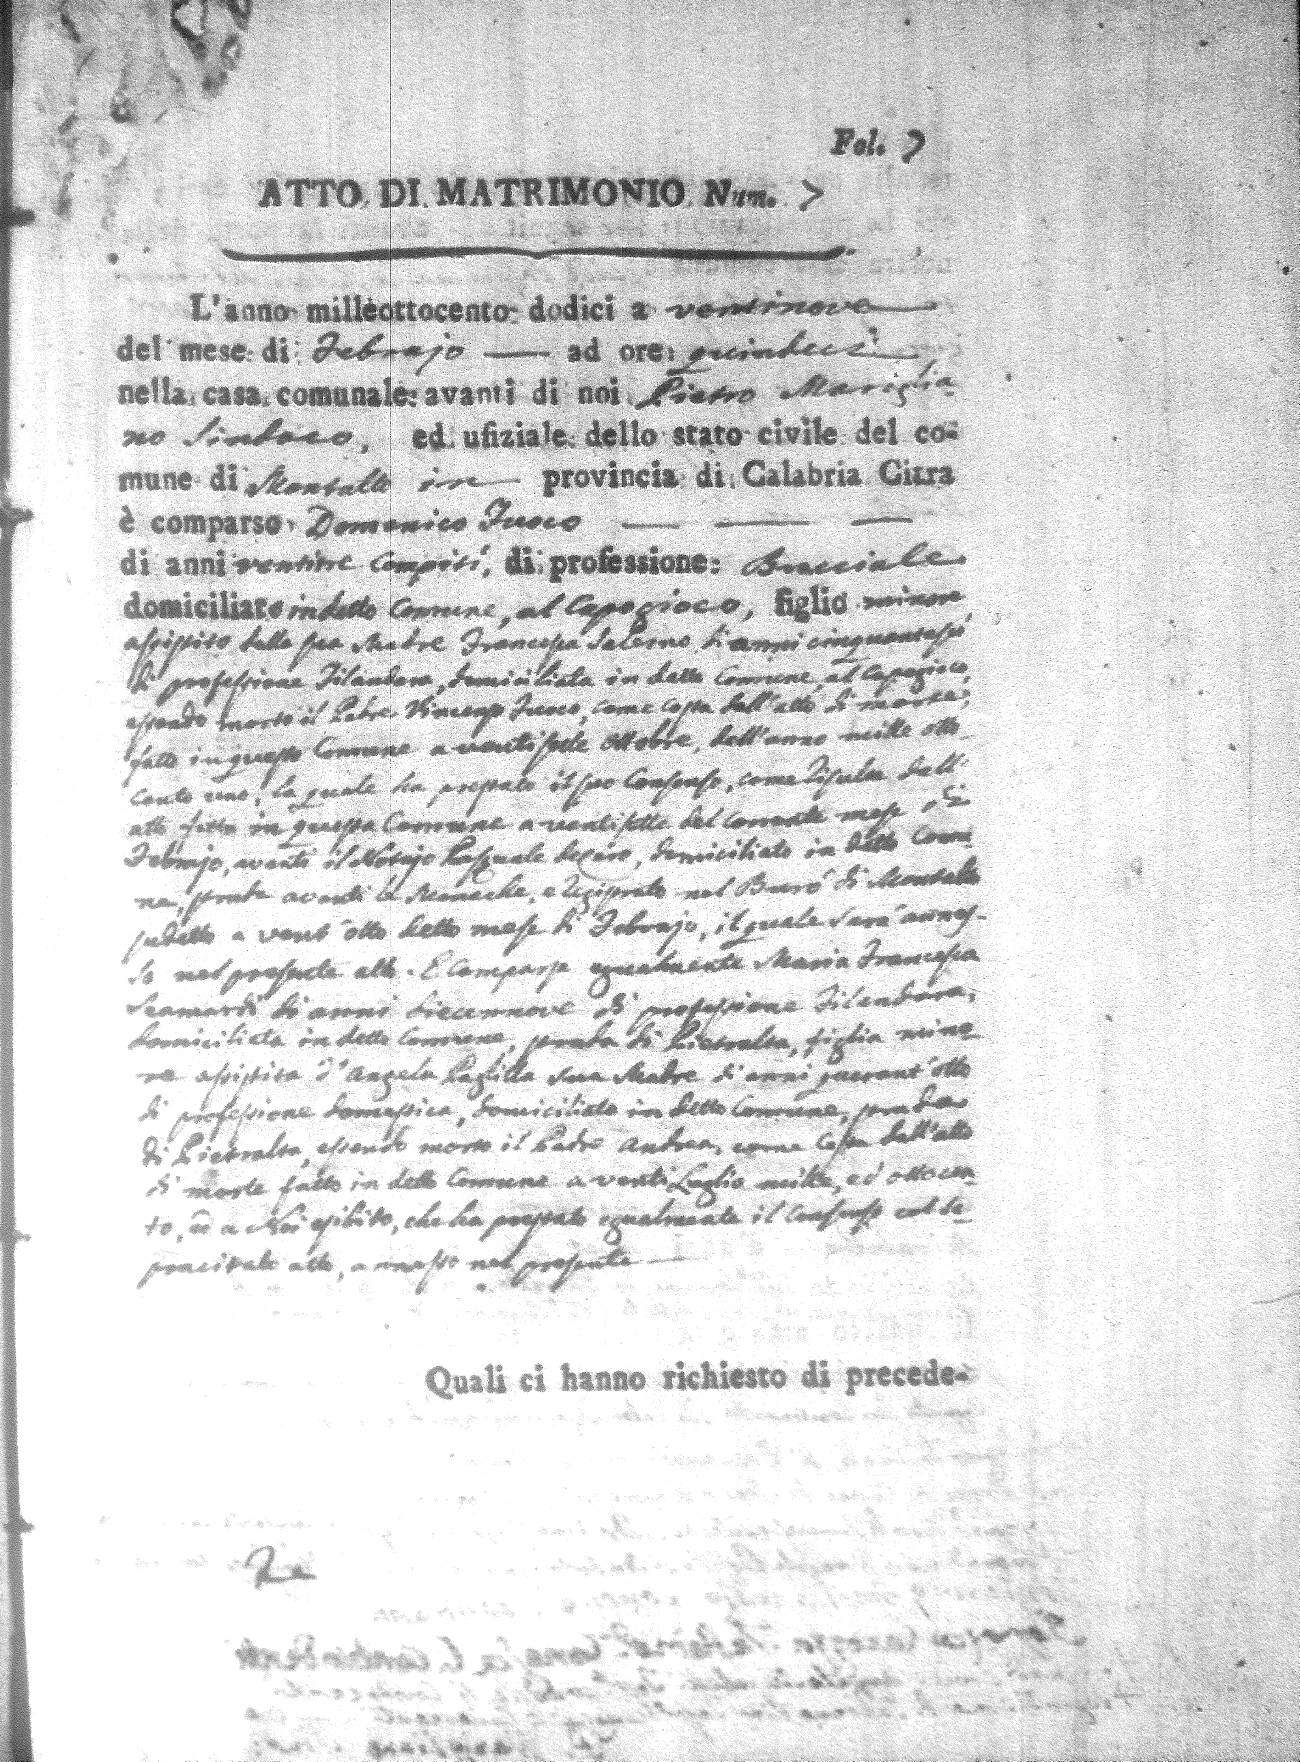 Fol. 7
ATTO DI MATRIMONIO Num. 7
L'anno milleottocento dodici a ventinove
del mese di Febrajo — ad ore quindeci
nella casa comunale avanti di noi Pietro Mariglia-
no Sindaco, ed ufiziale dello stato civile del co-
mune di Montalto in provincia di Calabria Citra
è comparso Domenico Fusco — — —
di anni ventitre compiti, di professione Bracciale
domiciliato in detto Comune, al Capogioco, figlio minore
assistito dalla sua Madre Francesca Salerno di anni cinquantasei
di professione Filandara, domiciliata in detto Comune al Capogioco,
essendo morto il Padre Vincenzo Fusco, come costa dall'atto di morte,
fatto in questo Comune a ventisette Ottobre, dell'anno mille otto
cento uno, la quale ha prestato il suo Consenso, come risulta dall'
atto fatto in questa Comune a ventisette del corrente mese di
Febrajo, avanti il Notajo Pasquale domiciliato in detto Comu-
ne, avanti e registrato nel Burò di Montalto
sudetto a vent'otto detto mese di Febrajo, il quale sarà annes-
so nel presente atto. E Comparsa egualmente Maria Francesca
Scamardi di anni diecennove di professione Filandara,
domiciliata in detto Comune, strada di Pietralta, figlia mino-
re assistita d'Angela Paglilla sua Madre di anni quarant'otto
di professione domestica, domiciliata in detto Comune, strada
di Pietralta, essendo morto il Padre Andrea, come costa dall'atto
di morte fatto in detto Comune a venti Luglio mille, ed ottocen-
to, a Noi esibito, che ha prestato egualmente il Consenso col so-
pracitato atto, annesso nel presente —
Quali ci hanno richiesto di precede-